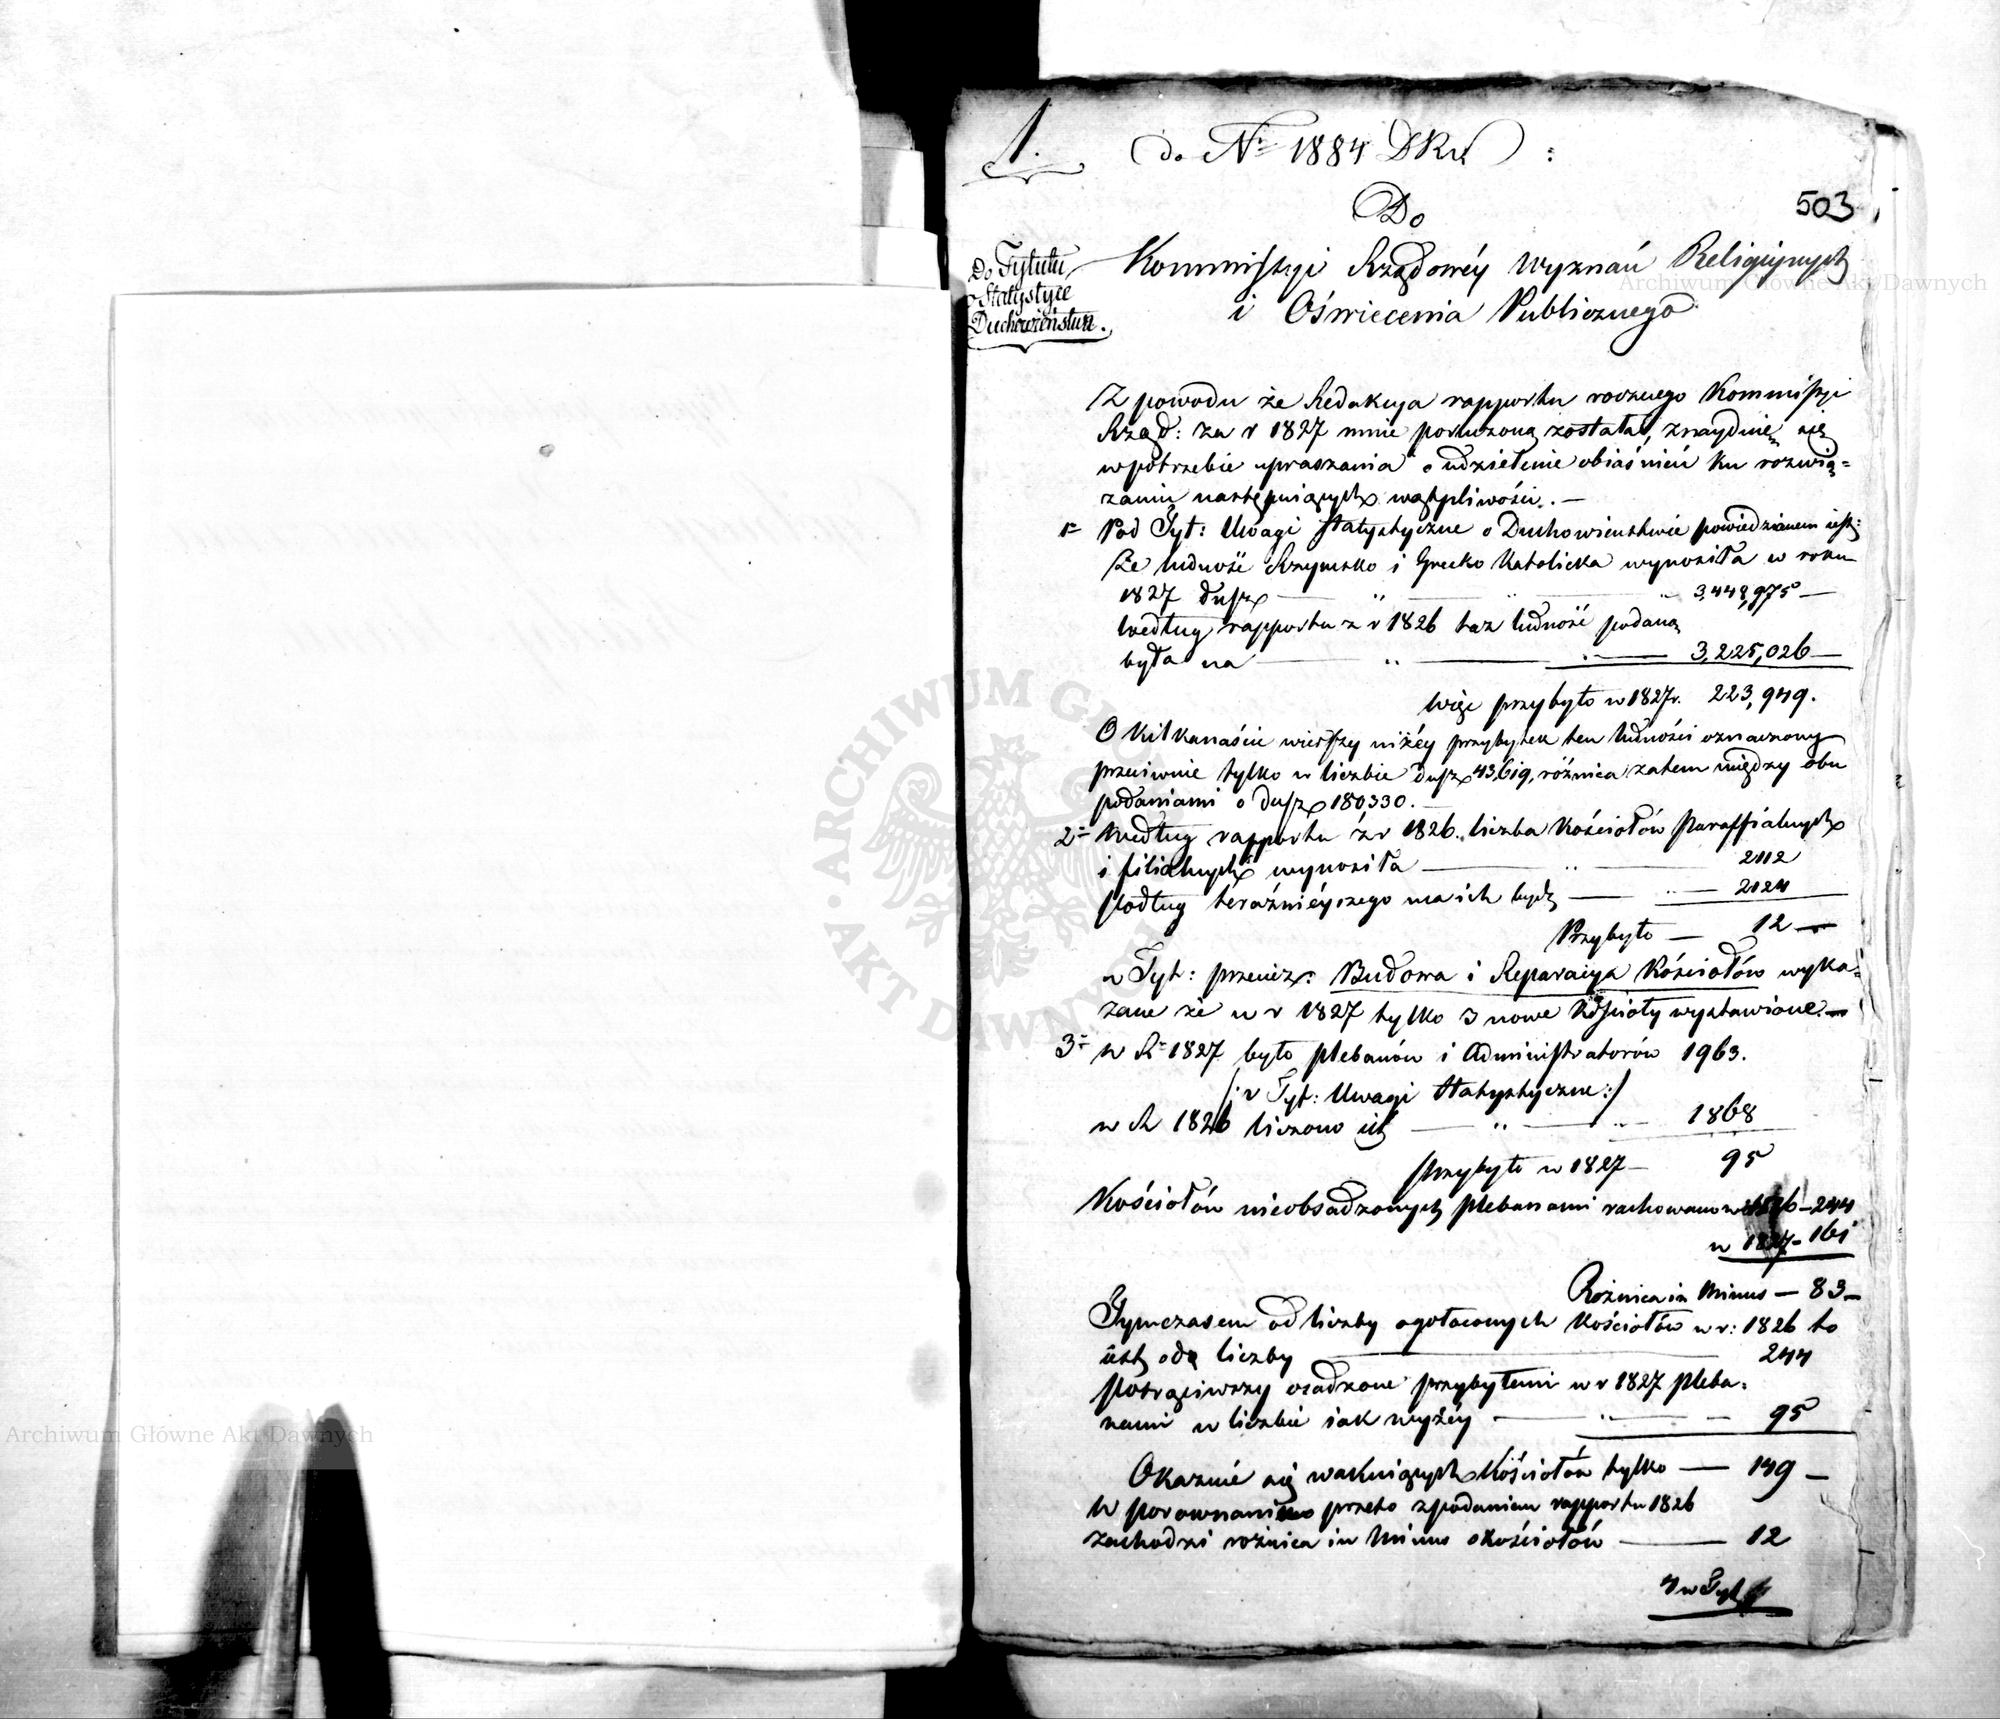 1.
do Nr 1884 DKu :
503
Do
Kommissyi Rządowéy Wyznań Religiynych
i Oświecenia Publicznego
Do Tytułu
o Statystyce
Duchowieństwa.
Z powodu że Redakcya rapportu rocznego Kommissyi
Rząd: za r 1827 mnie poruczoną została, znayduię się
w potrzebie upraszania o udzielenie obiaśnień ku rozwią=
zaniu następuiących wątpliwości. —
1= Pod Tyt: Uwagi statystyczne o Duchowieństwie powiedzianem iest:
Że ludność Rzymsko i Grecko Katolicka wynosiła w roku
1827 dusz — " — " — " 3,448,975 —
według rapportu z r 1826 taż ludność podaną
była na — " — " — 3,225,026 —
więc przybyło w 1827 r. 223,949.
O kilkanaście wierszy niżéy przybytek ten ludności oznaczony
przeciwnie tylko w liczbie dusz 43,619, różnica zatem między obu
podaniami o dusz 180330. —
2= Według rapportu z r 1826. liczba Kościołów Paraffialnych
i filialnych wynosiła — " — 2112
podług teraźnieyszego ma ich bydź — " — 2124
Przybyło — 12 —
w Tyt: przeciez: Budowa i Reparacya Kościołów wyka=
zane że w r 1827 tylko 3 nowe Kościoły wystawione. —
3= w R= 1827 było plebanów i Administratorów 1963.
/: v Tyt: Uwagi Statystyczne :/
w R 1826 liczono ich — " — " — 1868
przybyło w 1827 — 95
Kościołów nieobsadzonych plebanami rachowano w 1826 — 244
w 1827 — 161
Różnica in Minus — 83 —
Tymczasem od liczby ogołoconych Kościołów w r: 1826 to
iest od liczby — 244
potrąciwszy osadzone przybyłemi w r 1827 pleba=
nami w liczbie iak wyżéy — " — 95
Okazuie się wakuiących Kościołów tylko — 149 —
W porownaniu przeto z podaniem rapportu 1826
zachodzi rożnica in Minus o Kościołów — 12
4 w Tyt
ARCHIWUM GŁ
AKT DAWNYCH
Archiwum Główne Akt Dawnych
Archiwum Główne Akt Dawnych